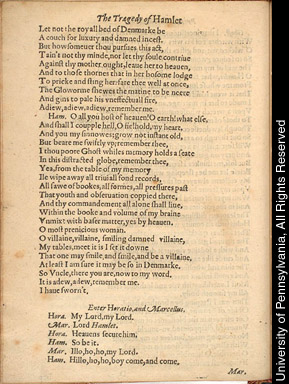 The Tragedy of Hamlet
Let not the royall bed of Denmarke be
A couch for luxury and damned incest.
But howsomeuer thou pursues this act,
Tain't not thy minde, nor let thy soule contriue
Against thy mother ought, leaue her to heauen,
And to those thornes that in her bosome lodge
To pricke and sting her, fare thee well at once,
The Gloworme shewes the matine to be neere
And gins to pale his vneffectuall fire,
Adiew, adiew, adiew, remember me.
Ham. O all you host of heauen, O earth, what else,
And shall I coupple hell, O fie, hold, my heart,
And you my sinnowes, grow not instant old,
But beare me swiftly vp; remember thee,
I thou poore Ghost whiles memory holds a seate
In this distracted globe, remember thee,
Yea, from the table of my memory
Ile wipe away all triuiall fond records,
All sawe of bookes, all formes, all pressures past
That youth and obseruation coppied there,
And thy commandement all alone shall liue,
Within the booke and volume of my braine
Vnmixt with baser matter, yes by heauen,
O most pernicious woman.
O villaine, villaine, smiling damned villaine,
My tables, meet it is I set it downe
That one may smile, and smile, and be a villaine,
At least I am sure it may be so in Denmarke.
So Vncle, there you are, now to my word,
It is adew, adew, remember me.
I haue sworn't.
Enter Horatio, and Marcellus.
Hora. My Lord, my Lord.
Mar. Lord Hamlet.
Hora. Heauens secure him.
Ham. So be it.
Mar. Illo, ho, ho, my Lord.
Ham. Hillo, ho, ho, boy come, and come.
Mar.
University of Pennsylvania, All Rights Reserved